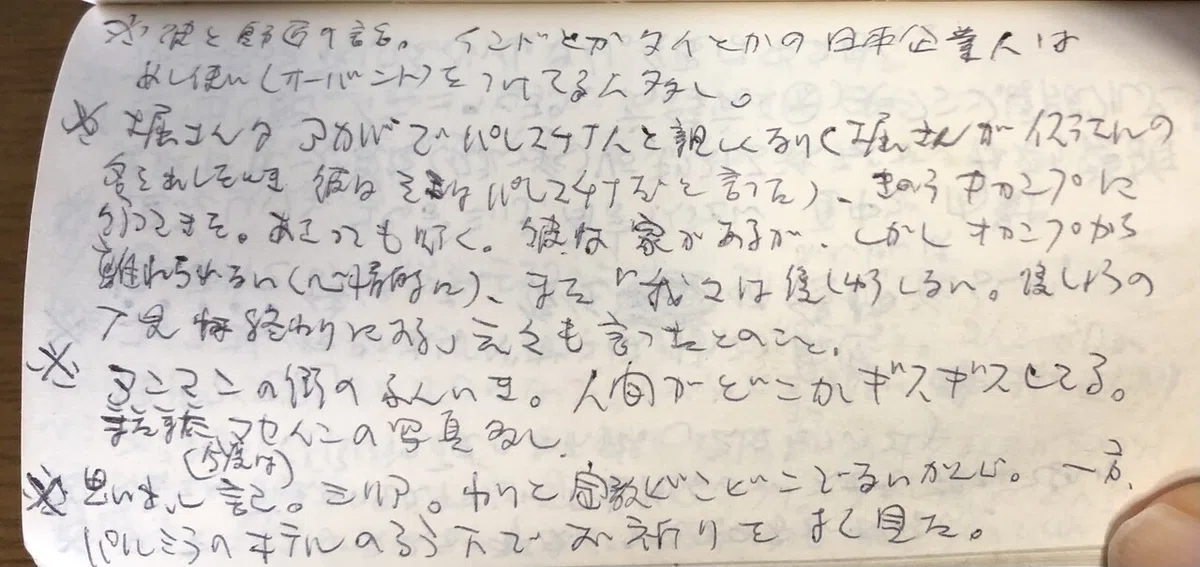 ※彼と的の話。インドとかタイとかの日本企業人は
めし使い(オーバント)をつけてる人多し。
※堀さん アカバでパレスチナ人と親しくなり(堀さんがイスラエルの
彼は そこはパレスチナだと言った)、きのうオカンプに
行ってきた。あっても 聞く。彼は家があるが、しかしオカンプから
離れられない(心情的に)、また「我々は 復しゅうしない。復しゅうの
終わりになる」云々も言ったとのこと。
※アンマンの街のふんいき。人間がどこかギスギスしてる。
またまた、フセインの写真多し。
(今度は)
※思い出し記。シリア。わりと宗教どこどこでないかんじ。一方、
パルミラのホテルのろう下でお祈りをよく見た。